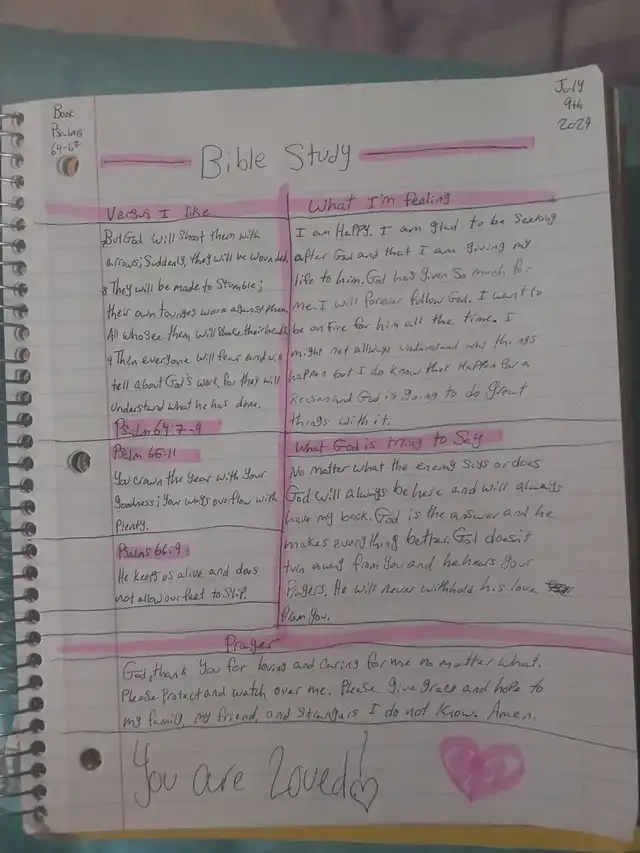 Book
Psalms
64-67
July
9th
2024
Bible Study
Versus I like
But God will shoot them with
arrows; Suddenly, they will be wounded.
8 They will be made to Stumble;
their own tounges worn against them.
All who see them will Shake their heads
9 Then everyone will fear and will
tell about God's work, for they will
understand what he has done.
Psalm 64:7-9
Psalm 65:11
You crown the year with your
goodness; your ways overflow with
Plenty.
Psalms 66:9
He keeps us alive and does
not allow our feet to Slip.
What I'm feeling
I am Happy. I am glad to be Seeking
after God and that I am giving my
life to him. God has given So much for
me. I will forever follow God. I want to
be on fire for him all the time. I
might not allways understand why things
happen but I do know that Happen for a
Reason and God is going to do great
things with it.
What God is trying to Say
No matter what the enemy says or does
God will always be here and will always
have my back. God is the answer and he
makes everything better. God doesn't
turn away from you and he hears your
Prayers. He will never withhold his love
from You.
Prayer
God, thank You for loving and Caring for me no matter what.
Please Protect and watch over me. Please give grace and hope to
my family, my friend, and Strangers I do not Know. Amen.
You are Loved!